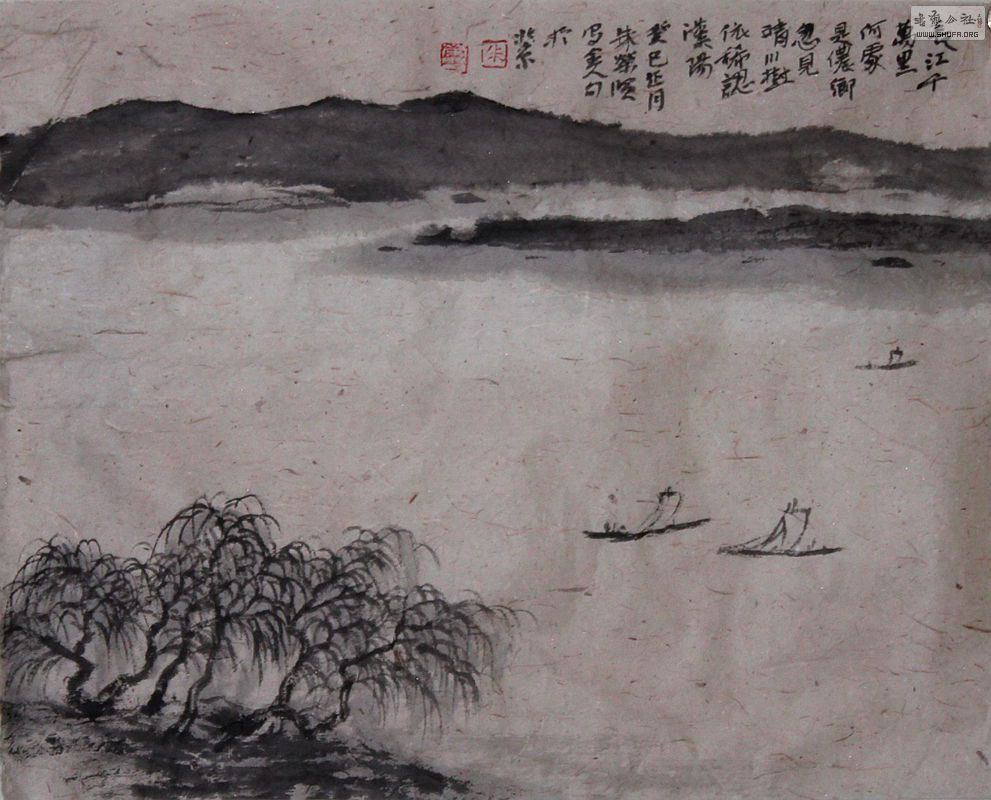 長江千
萬里
何處
是儂鄉
忽見
晴川樹
依稀認
漢陽
癸巳正月
朱榮
寫人句
於
朱
書藝公社
WWW.SHUFA.ORG